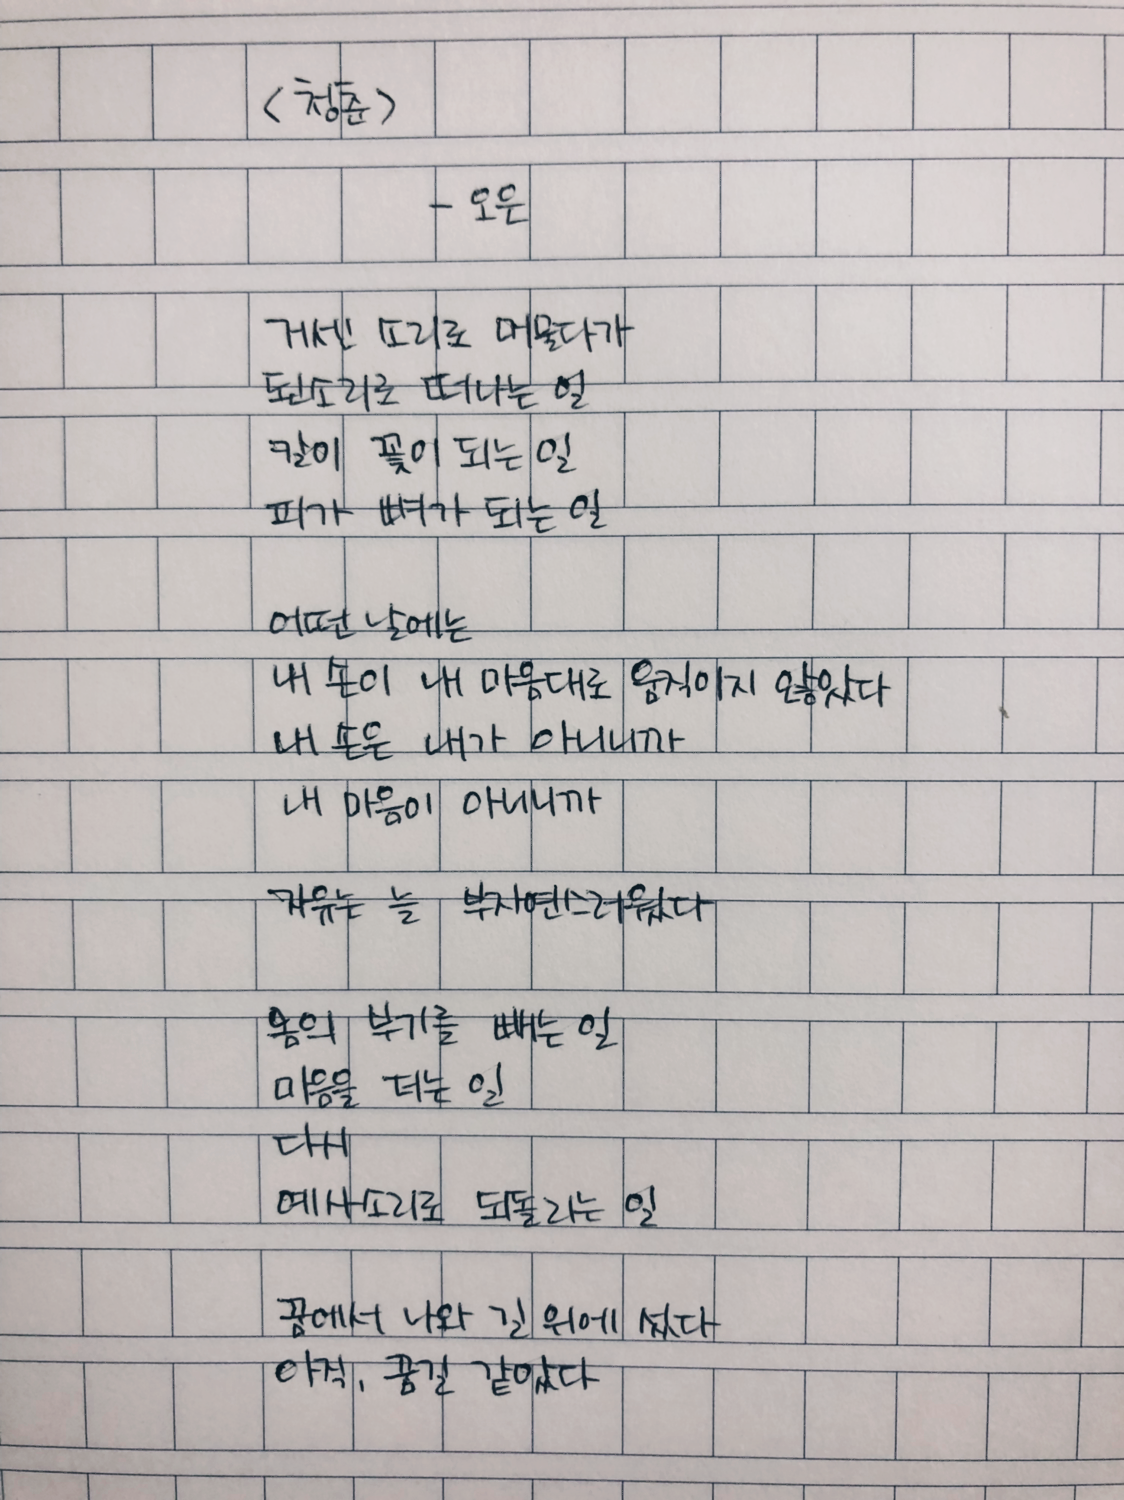 <청춘>
- 오은
거센 소리로 머물다가
된소리로 떠나는 일
칼이 꽃이 되는 일
피가 뼈가 되는 일
어떤 날에는
내 손이 내 마음대로 움직이지 않았다
내 손은 내가 아니니까
내 마음이 아니니까
자유는 늘 부자연스러웠다
몸의 부기를 빼는 일
마음을 더는 일
다시
예사소리로 되돌리는 일
꿈에서 나와 길 위에 섰다
아직, 꿈길 같았다